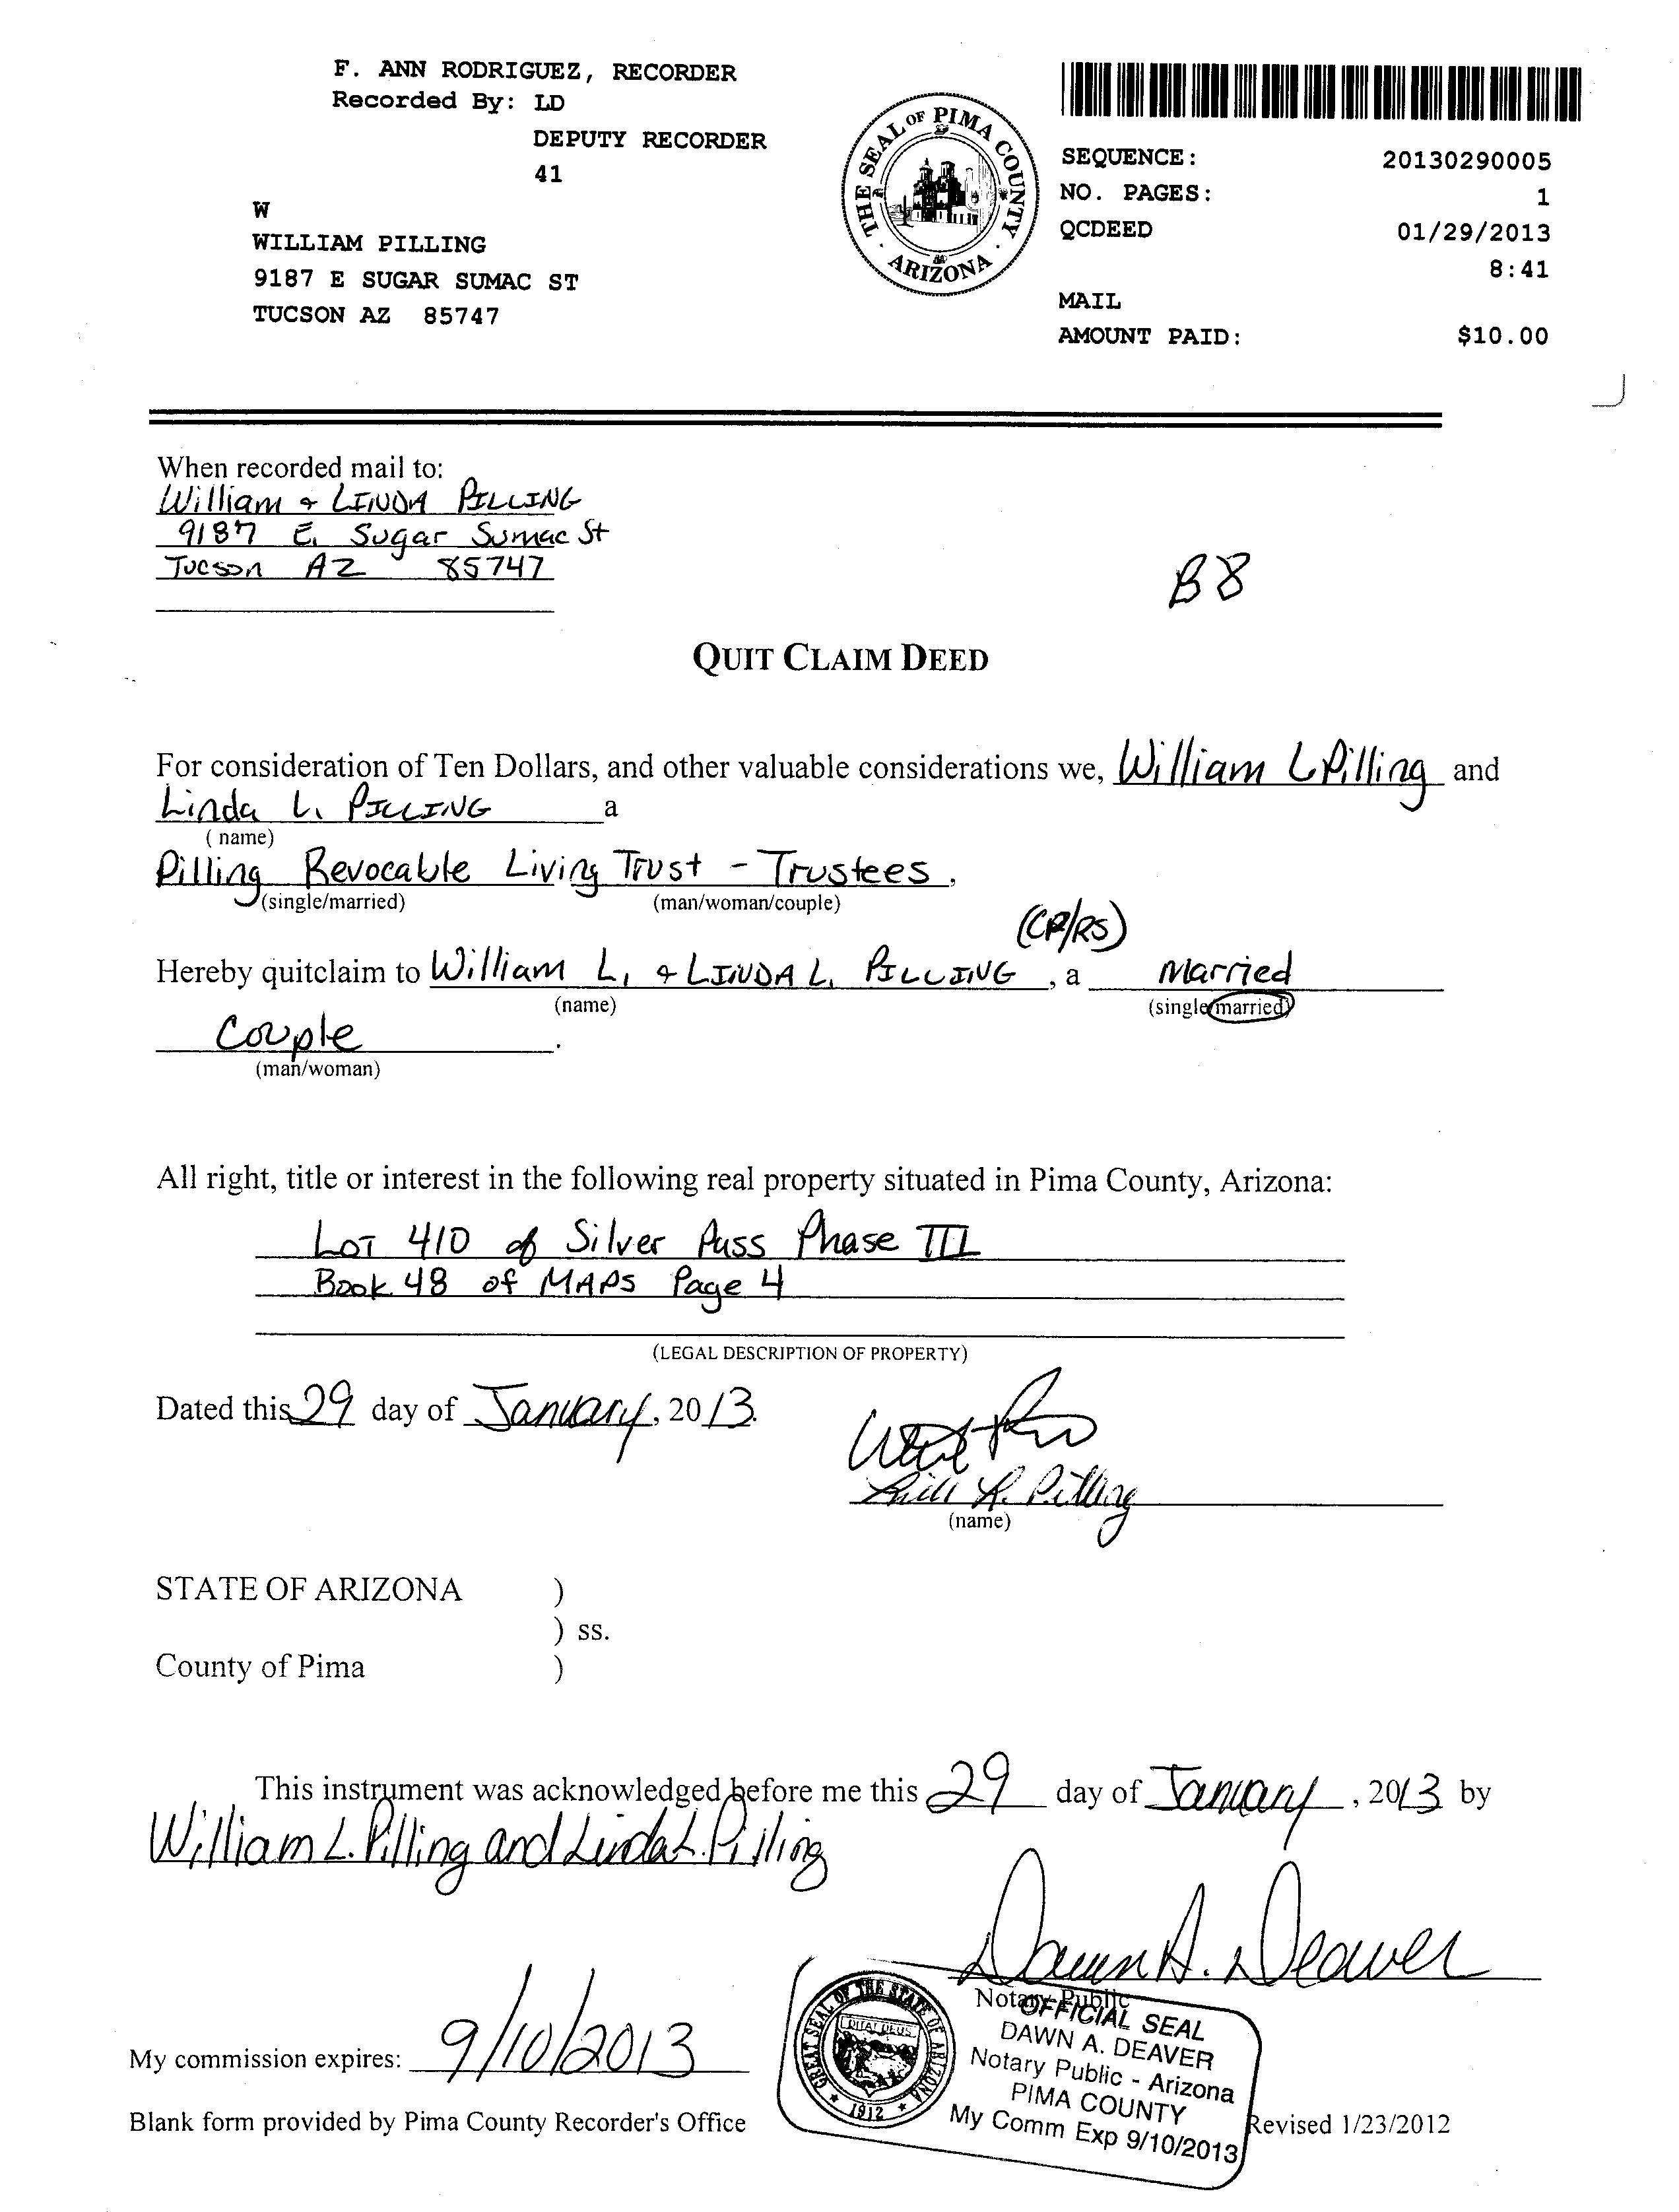 F. ANN RODRIGUEZ, RECORDER
Recorded By: LD
DEPUTY RECORDER
41
W
WILLIAM PILLING
9187 E SUGAR SUMAC ST
TUCSON AZ 85747
THE SEAL OF PIMA COUNTY
ARIZONA
SEQUENCE: 20130290005
NO. PAGES: 1
QCDEED 01/29/2013
8:41
MAIL
AMOUNT PAID: $10.00
When recorded mail to:
William & LINDA PILLING
9187 E. Sugar Sumac St
Tucson AZ 85747
B8
QUIT CLAIM DEED
For consideration of Ten Dollars, and other valuable considerations we, William L Pilling and
Linda L. PILLING a
( name)
Pilling Revocable Living Trust - Trustees.
(single/married) (man/woman/couple)
(CP/RS)
Hereby quitclaim to William L. & LINDA L. PILLING, a Married
(name) (single/married)
Couple.
(man/woman)
All right, title or interest in the following real property situated in Pima County, Arizona:
LOT 410 of Silver Pass Phase III
Book 48 of MAPS Page 4
(LEGAL DESCRIPTION OF PROPERTY)
Dated this 29 day of January, 2013.
L. Pilling
(name)
STATE OF ARIZONA )
) ss.
County of Pima )
This instrument was acknowledged before me this 29 day of January, 2013 by
William L. Pilling and Linda L. Pilling
Dawn A. Deaver
Notary Public
GREAT SEAL OF THE STATE OF ARIZONA
DITAT DEUS
1912
OFFICIAL SEAL
DAWN A. DEAVER
Notary Public - Arizona
PIMA COUNTY
My Comm Exp 9/10/2013
My commission expires: 9/10/2013
Blank form provided by Pima County Recorder's Office Revised 1/23/2012